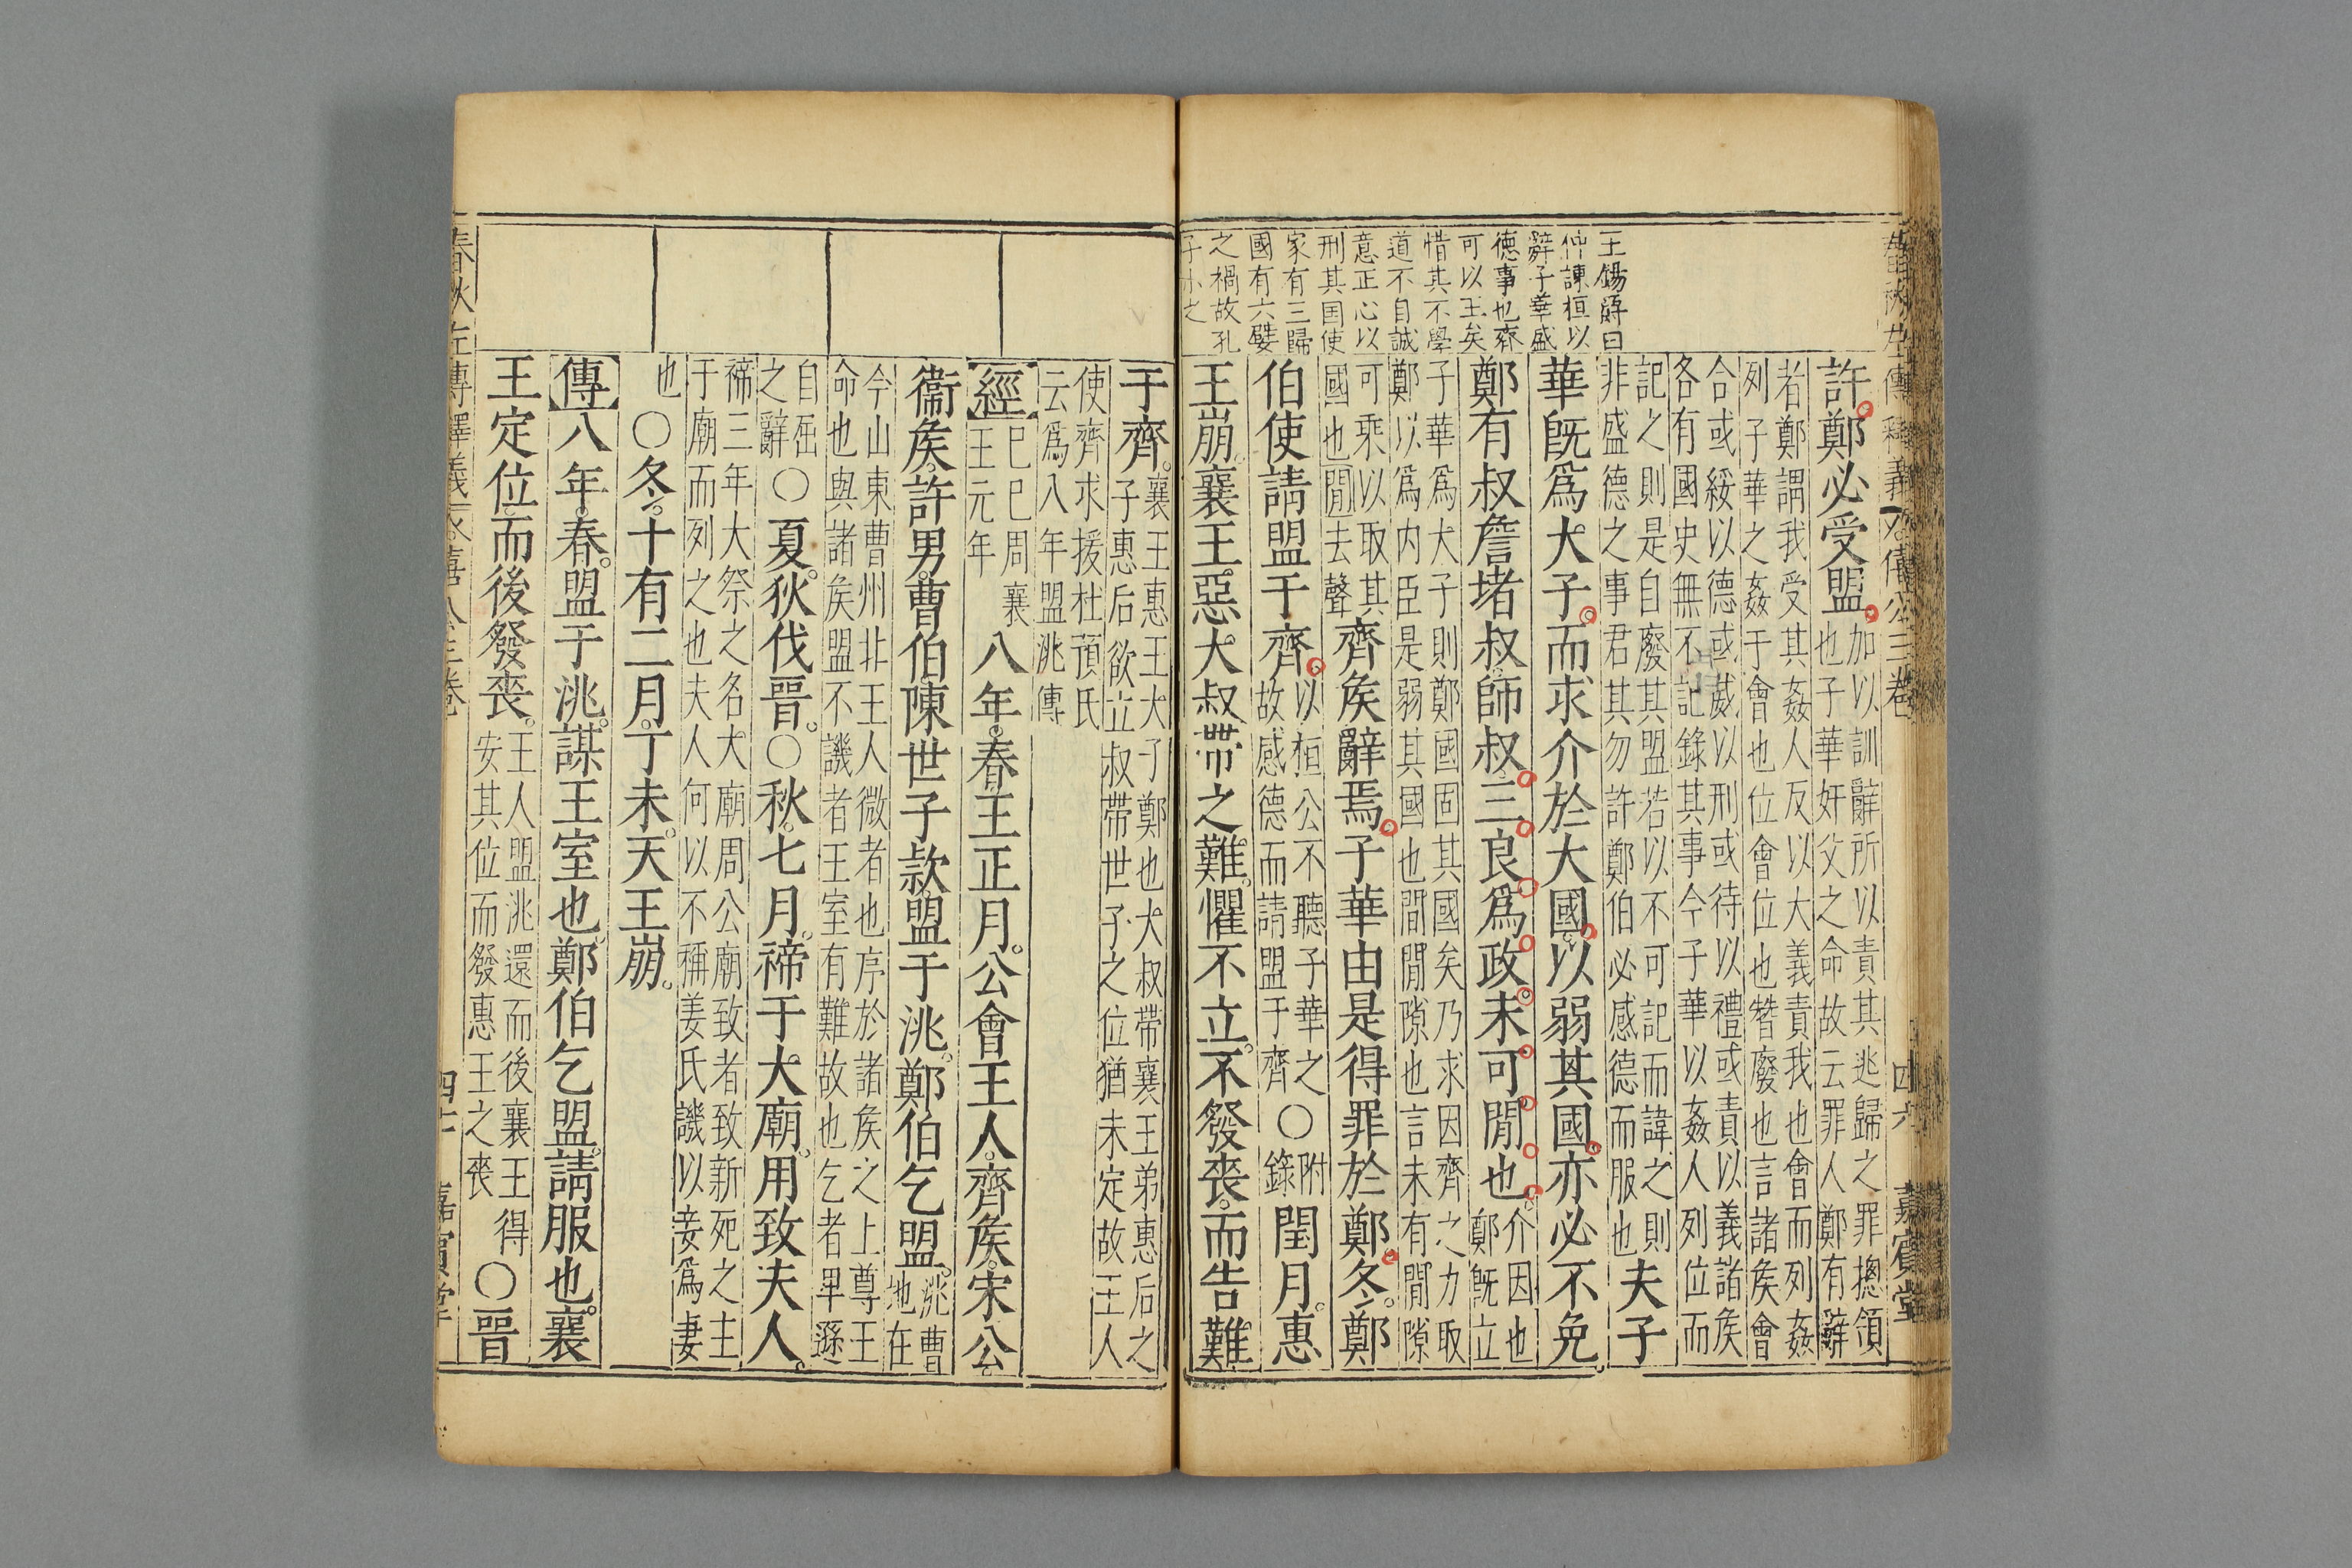 王錫爵曰
仲諫桓以
辭子華盛
德事也齊
可以王矣
惜其不學
道不自誠
意正心以
刑其国使
家有三歸
國有六嬖
之禍故孔
子小之
許鄭必受盟
加以訓辭所以責其逃歸之罪摠領
也子華奸父之命故云罪人鄭有辭
者鄭謂我受其姦人反以大義責我也會而列姦
列子華之姦于會也位會位也替廢也言諸矦會
合或綏以德或威以刑或待以禮或責以義諸矦
各有國史無不記錄其事今子華以姦人列位而
記之則是自廢其盟若以不可記而諱之則
非盛德之事君其勿許鄭伯必感德而服也
夫子
華旣爲大子而求介於大國以弱其國亦必不免
鄭有叔詹堵叔師叔三良爲政未可閒也
介因也
鄭旣立
子華爲大子則鄭國固其國矣乃求因齊之力取
鄭以爲内臣是弱其國也間閒隙也言未有閒隙
可乘以取其
國也閒去聲
齊矦辭焉子華由是得罪於鄭冬鄭
伯使請盟于齊
以桓公不聽子華之
故感德而請盟于齊
〇
附
錄
閏月惠
王崩襄王惡大叔帶之難懼不立不發喪而告難
于齊
襄王惠王大子鄭也大叔帶襄王弟惠后之
子惠后欲立叔帶世子之位猶未定故王人
使齊求援杜預氏
云爲八年盟洮傳
經
己巳周襄
王元年
八年春王正月公會王人齊矦宋公
衞矦許男曹伯陳世子款盟于洮鄭伯乞盟
洮曹
地在
今山東曹州非王人微者也序於諸矦之上尊王
命也與諸矦盟不譏者王室有難故也乞者卑遜
自屈
之辭
〇夏狄伐晉〇秋七月禘于大廟用致夫人
禘三年大祭之名大廟周公廟致者致新死之主
于廟而列之也夫人何以不稱姜氏譏以妾爲妻
也
〇冬十有二月丁未天王崩
傳八年春盟于洮謀王室也鄭伯乞盟請服也襄
王定位而後發喪
王人盟洮還而後襄王得
安其位而發惠王之喪
〇晉
春秋左傳釋義
僖公三卷
四六
嘉賓堂